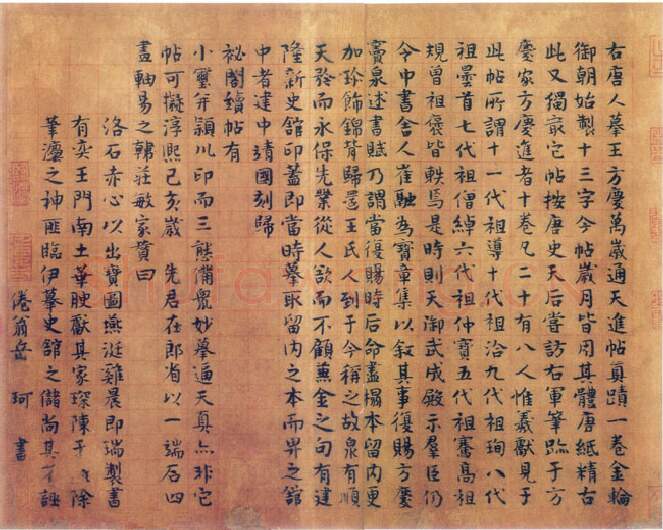 右唐人摹王方慶萬歲通天進帖真蹟一卷金輪
御朝始製十三字今帖歲月皆用其體唐紙精古
此又獨最它帖按唐史天后嘗訪右軍筆蹟于方
慶家方慶進者十卷凡二十有八人惟羲獻見于
此帖所謂十一代祖導十代祖洽九代祖珣八代
祖曇首七代祖僧綽六代祖仲寶五代祖騫高祖
規曾祖褒皆軼焉是時則天御武成殿示羣臣仍
令中書舍人崔融為寶章集以敘其事復賜方慶
竇泉述書賦乃謂當復賜時后命盡榻本留內更
加珍飾錦背歸還王氏人到于今稱之故泉有順
天矜而永保先業從人欲而不顧蒹金之句有建
隆新史舘印蓋即當時摹取留內之本而畀之舘
中者建中靖國刻歸
祕閣續帖有
小璽并潁川印而三態備眾妙摹逼天真亦非它
帖可擬淳熙己亥歲 先君在郎省以一端石四
畫軸易之韓莊敏家贊曰
洛石赤心以出寶圖燕涎雞晨即瑞製書
有奕王門南土華腴獻其家琛陳于 除
筆 之神匪臨伊摹史舘之儲尚其不誣
倦翁岳 珂 書